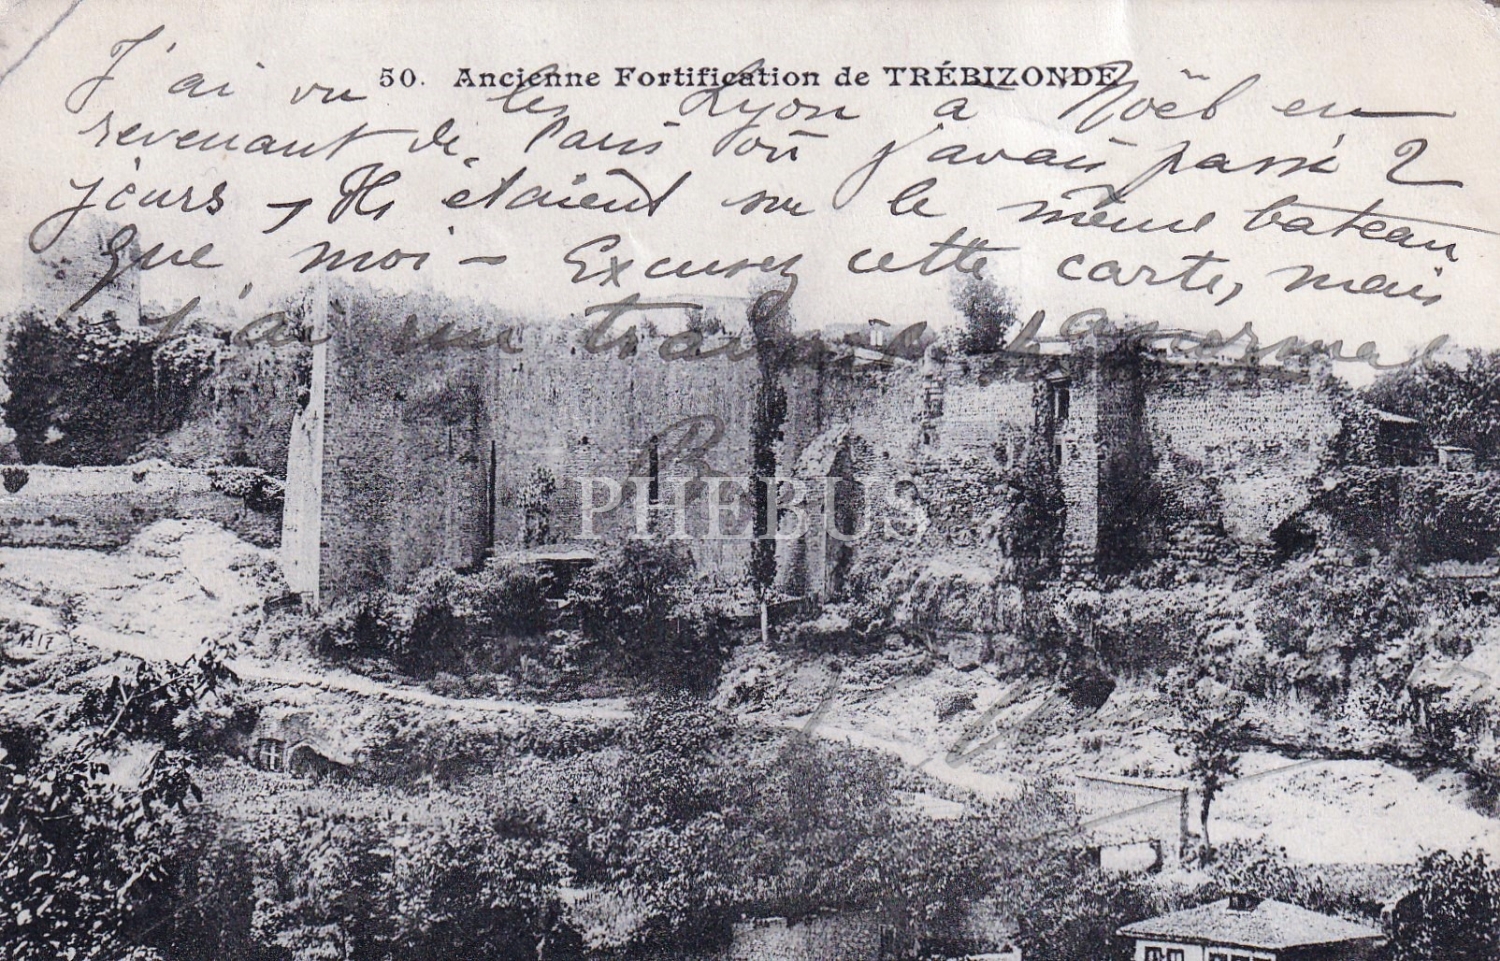 50. Ancienne Fortification de TRÉBIZONDE
J'ai vu les Lyon à Noël en
revenant de Paris où j'avais passé 2
jours – Ils étaient sur le même bateau
que moi – Excusez cette carte, mais
j'ai un travail anormal
PHEBUS